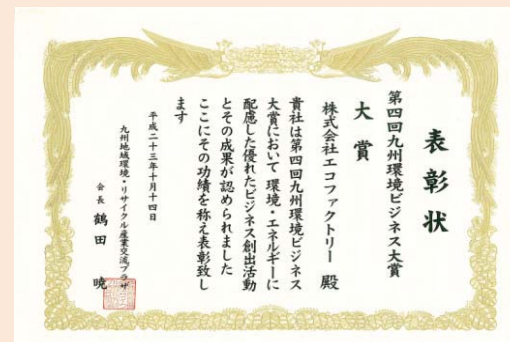 表彰状
第四回九州環境ビジネス大賞
大賞
株式会社エコファクトリー 殿
貴社は第四回九州環境ビジネス
大賞において環境・エネルギーに
配慮した優れたビジネス創出活動
とその成果が認められました
ここにその功績を称え表彰致し
ます
平成二十三年十月十四日
九州地域環境・リサイクル産業交流プラザ
会長 鶴田 暁